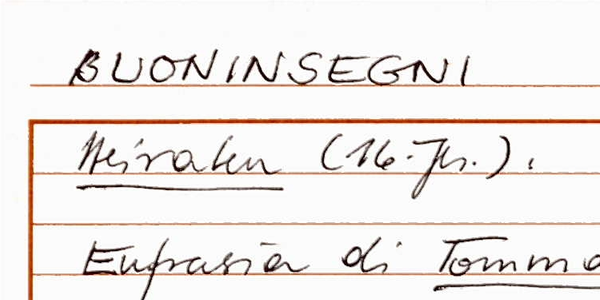 BUONINSEGNI
Heiraten (16. Jh.).
Eufrasia di Tomma